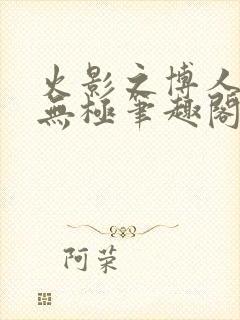 火影之博人
無極筆趣閣
阿荣